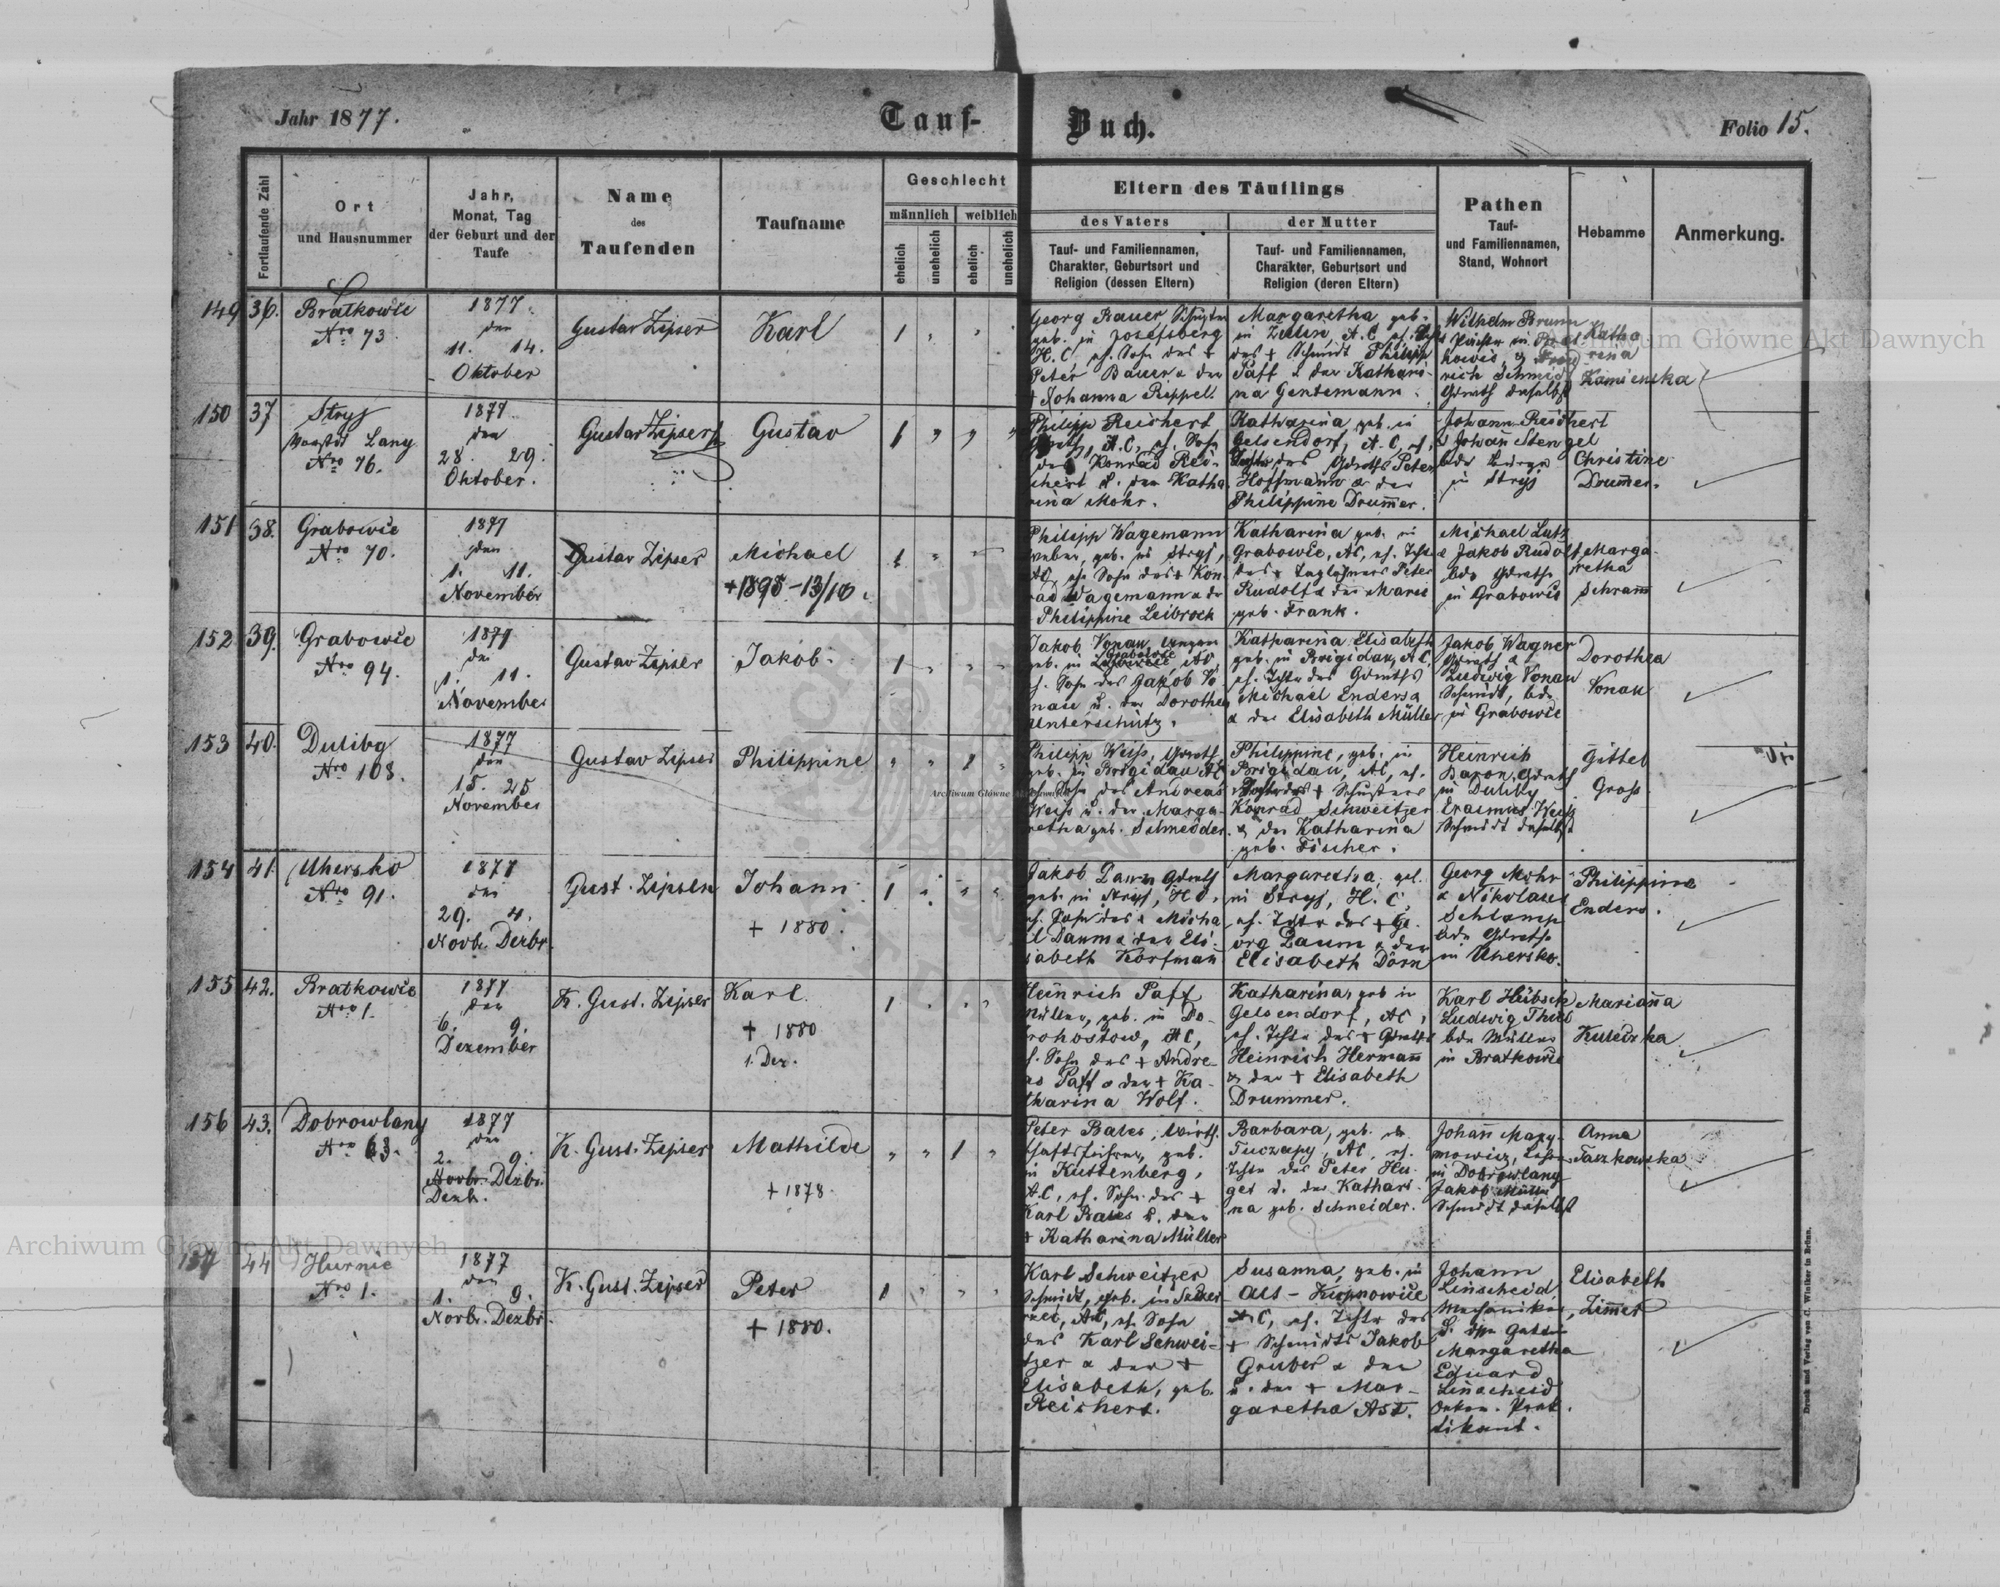 Jahr 1877.
Tauf-Buch.
Folio 15.
Fortlaufende Zahl
Ort
und Hausnummer
Jahr,
Monat, Tag
der Geburt und der
Taufe
Name
des
Taufenden
Taufname
Geschlecht
männlich
weiblich
ehelich
unehelich
ehelich
unehelich
Eltern des Täuflings
des Vaters
Tauf- und Familiennamen,
Charakter, Geburtsort und
Religion (dessen Eltern)
der Mutter
Tauf- und Familiennamen,
Charakter, Geburtsort und
Religion (deren Eltern)
Pathen
Tauf-
und Familiennamen,
Stand, Wohnort
Hebamme
Anmerkung.
149 36.
Bratkowic
Nro 73
1877.
den
11. 14.
Oktober
Gustav Zipser
Karl
1
Georg Bauer
geb. in Josefsberg
H.C, eh. Sohn des +
Peter Bauer & der
+ Johanna Rippel.
Margaretha geb.
in A.C eh.
des + Schmidt Philipp
Paff & der Kathari-
na Gentemann.
Wilhelm Brunn
Pächter in Brat
kowic &
rich Schmid
daselbst
Katha
rina
Kamienska
150 37
Stryj
Lany
Nro 76.
1877.
den
28. 29.
Oktober.
Gustav Zipser
Gustav
1
Philipp Reichert
A.C, eh. Sohn
des Konrad Rei-
chert & der Katha
rina Mohr.
Katharina geb. in
Gelsendorf, A.C, eh.
des Peter
Hoffmann & der
Philippine Drummer.
Johann Reichert
& Johan Stengel
bde
in Stryj
Christine
Drummer.
151 38.
Grabowic
Nro 70.
1877
den
1. 11.
November
Gustav Zipser
Michael
+ 1895 - 13/10.
1
Philipp Wagemann
Weber, geb. in Stryj,
AC, eh. Sohn des + Kon
rad Wagemann & der
Philippine Leibrock
Katharina geb. in
Grabowic, AC, eh. Tchtr
des + Taglöhners Peter
Rudolf & der Marie
geb. Frank.
Michael Lutz
& Jakob Rudolf
bde
in Grabowic
Marga
retha
Schramm
152 39.
Grabowic
Nro 94.
1877
den
1. 11.
November
Gustav Zipser
Jakob.
1
Jakob Vonau
Grabowic
geb. in AC
eh. Sohn des Jakob Vo
nau u. der Dorothea
Unterschütz.
Katharina Elisabeth
geb. in Brigidau, A.C.
eh. Tchtr des
Michael Enders
& der Elisabeth Müller
Jakob Wagner
&
Ludwig Vonau
Schmidt, bde
in Grabowic
Dorothea
Vonau
153 40.
Duliby
Nro 108.
1877
den
15. 25
November
Gustav Zipser
Philippine
1
Philipp Weiss,
geb. in Brigidau AC
eh. Sohn des Andreas
Weiss u. der Marga-
retha geb. Schneider.
Philippine, geb. in
Brigidau, AC, eh.
des + Schusters
Konrad Schweitzer
& der Katharina
geb. Fischer.
Heinrich
Baron,
in Duliby
Erasmus Weiss
Schmidt daselbst
Gittel
Gross.
154 41.
Uhersko
Nro 91.
1877
den
29. 4.
Novb. Dezbr.
Gust. Zipser
Johann
+ 1880.
1
Jakob Daum
geb. in Stryj, H.C.
eh. Sohn des + Micha
el Daum & der Eli-
sabeth Korfman
Margaretha, geb.
in Stryj, H.C,
eh. Tchtr des + Ge-
org Daum & der
Elisabeth Dörn
Georg Mohr
& Nikolaus
Schlamp
bde
in Uhersko.
Philippine
Enders.
155 42.
Bratkowic
Nro 1.
1877
den
6. 9.
Dezember
K. Gust. Zipser
Karl
+ 1880
1. Dez.
1
Heinrich Paff
Müller, geb. in Do-
brohostow, AC,
eh. Sohn des + Andre-
as Paff & der + Ka-
tharina Wolf.
Katharina, geb in
Gelsendorf, AC,
eh. Tchtr des +
Heinrich Hermann
& der + Elisabeth
Drummer.
Karl Hübsch
Ludwig Thiel
bde Müller
in Bratkowic
Marianna
156 43.
Dobrowlany
Nro 63.
1877
den
2. 9.
Novbr. Dezbr.
Dezb.
K. Gust. Zipser
Mathilde
+ 1878
1
Peter Bales, Wirth-
schaftsführer, geb.
in Kuttenberg,
A.C, eh. Sohn des +
Karl Bales u. der
+ Katharina Müller
Barbara, geb. in
Tuczapy, AC, eh.
Tchtr des Peter Hu-
ger & der Kathari-
na geb. Schneider.
Johann
in Dobrowlany
Jakob Müller
Schmidt daselbst
Anna
Taszkowska
157 44
Hurnie
Nro 1.
1877
den
1. 9.
Novbr. Dezbr.
K. Gust. Zipser
Peter
+ 1880.
1
Karl Schweitzer
Schmidt, geb. in
AC, eh. Sohn
des Karl Schwei-
tzer & der +
Elisabeth, geb.
Reichert.
Susanna, geb. in
Alt-Kupnowice
A.C, eh. Tchtr des
+ Schmidts Jakob
Gruber & der
u. der + Mar-
garetha Ast.
Johann
Linscheid,
Mechaniker
u. Gattin
Margaretha
Eduard
Linscheid
Oekon. Prak-
tikant.
Elisabeth
Zimmer
Druck und Verlag von C. Winiker in Brünn.
Archiwum Główne Akt Dawnych
Archiwum Główne Akt Dawnych
Archiwum Główne Akt Dawnych